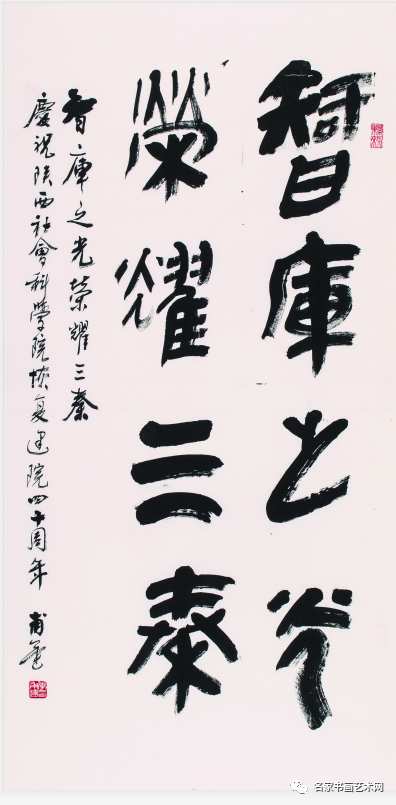 智庫之光
榮耀三秦
智庫之光榮耀三秦
慶祝陕西社會科學院恢复建院四十周年
名家书画艺术网